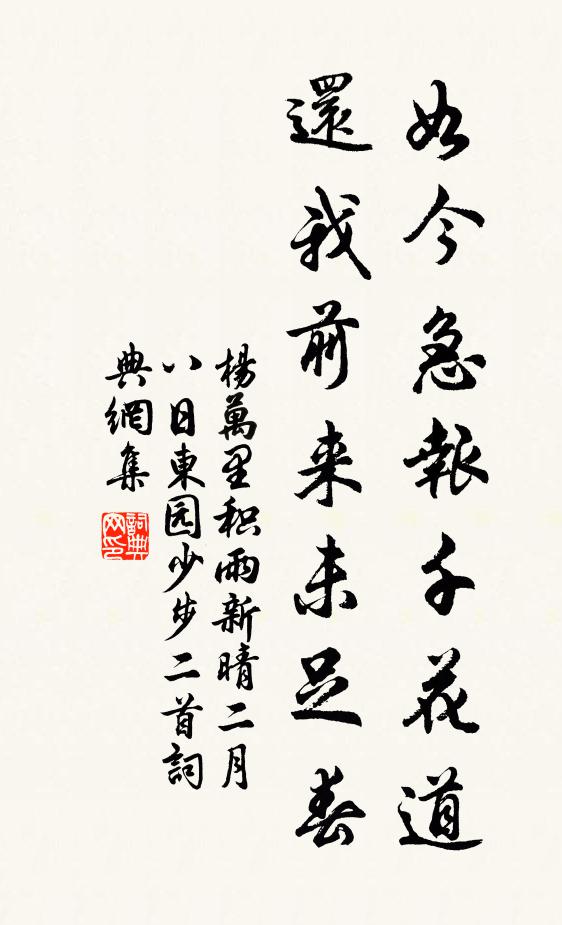 如今急報千花道
還我前来未足春
楊萬里积雨新晴二月
八日東园少步二首詞
典網集
詞典网印